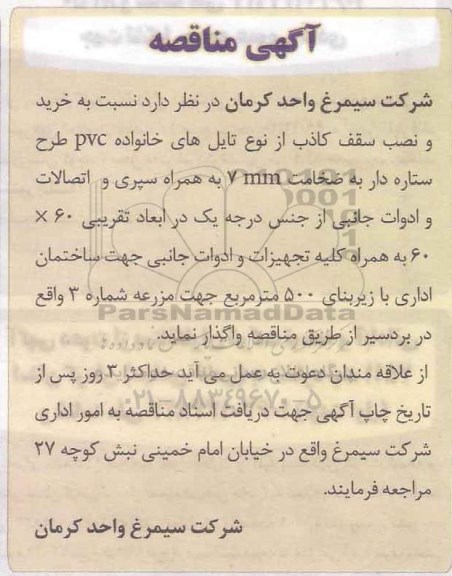 آگهی مناقصه
شرکت سیمرغ واحد کرمان در نظر دارد نسبت به خرید
و نصب سقف کاذب از نوع تایل های خانواده pvc طرح
ستاره دار به ضخامت ۷ mm به همراه سپری و اتصالات
و ادوات جانبی از جنس درجه یک در ابعاد تقریبی ۶۰ ×
۶۰ به همراه کلیه تجهیزات و ادوات جانبی جهت ساختمان
اداری با زیربنای ۵۰۰ مترمربع جهت مزرعه شماره ۳ واقع
ParsNamadData
در بردسیر از طریق مناقصه واگذار نماید.
از علاقه مندان دعوت به عمل می آید حداکثر ۳ روز پس از
۰۲۱-۸۸۳۴۹۶۷۰-۵
تاریخ چاپ آگهی جهت دریافت اسناد مناقصه به امور اداری
شرکت سیمرغ واقع در خیابان امام خمینی نبش کوچه ۲۷
مراجعه فرمایند.
شرکت سیمرغ واحد کرمان